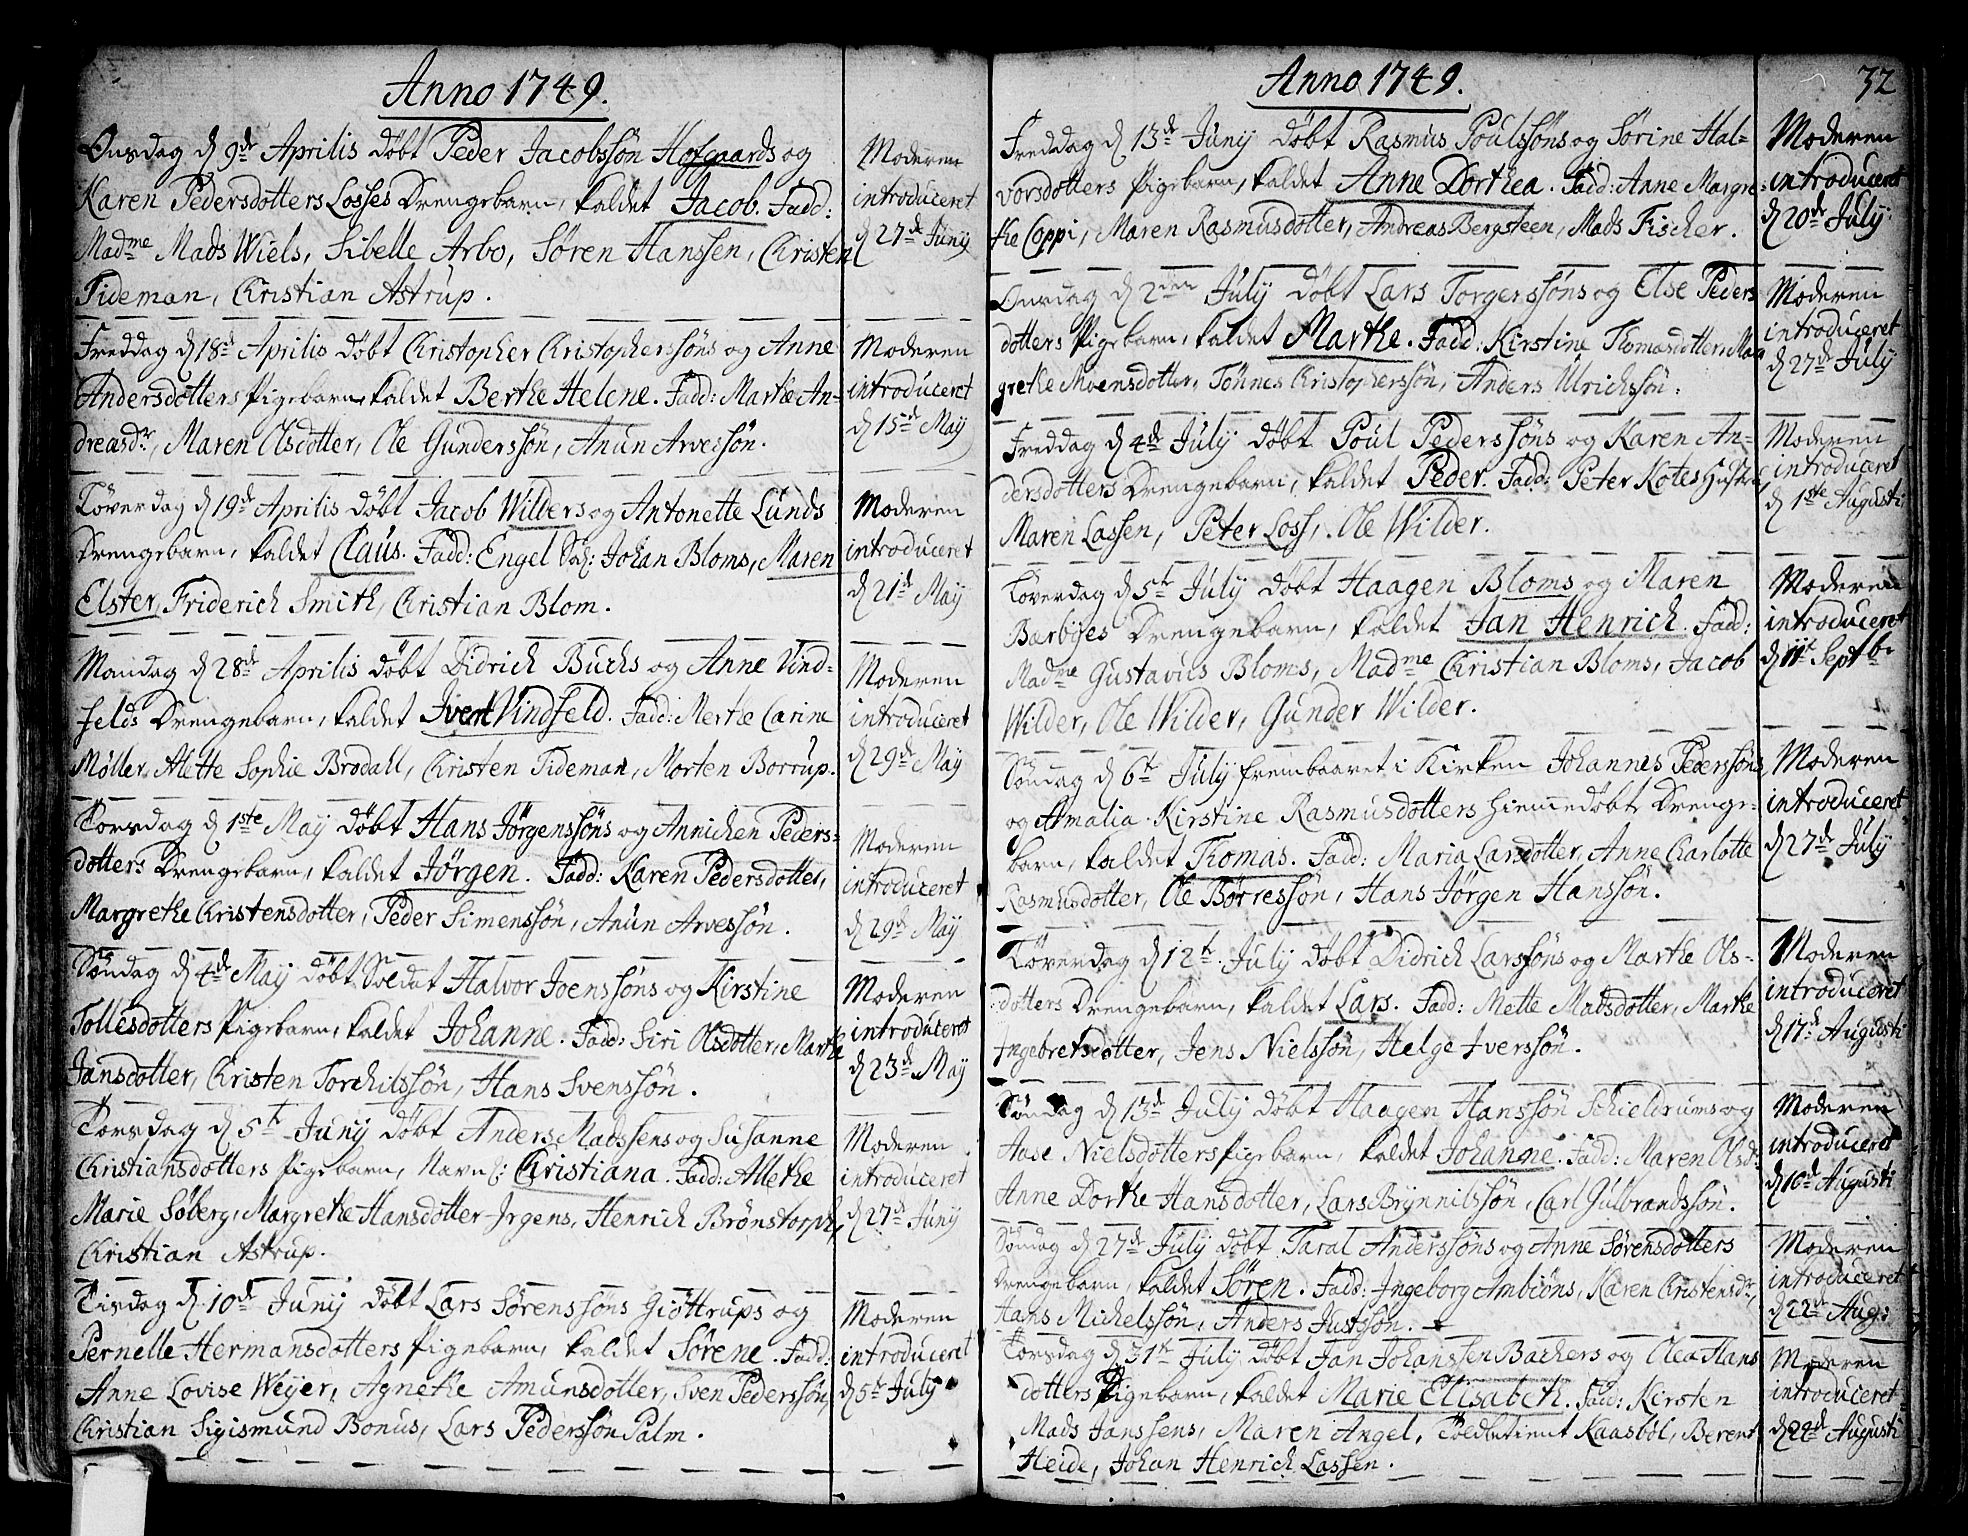 Anno 1749.
Onsdag d 9de Aprilis döbt Peder Jacobssön Hofgaards og
Karen Pedersdotters Losses Drengebarn, kaldet Jacob. Fadd:
Madme Mads Wiels, Sibelle Arbo, Sören Hanssen, Christen
Tideman, Christian Astrup.
Moderen
introduceret
d 27de Junij
Freddag d 18d Aprilis döbt Christopher Christopherssöns og Anne
Andersdotters Pigebarn, kaldet Berthe Helene. Fadd: Marthe An-
dreasdr, Maren Olsdotter, Ole Gunderssön, Anun Arvessön.
Moderen
introduceret
d 15d May
Löverdag d 19de Aprilis döbt Jacob Wilders og Antonette Lunds
Drengebarn, kaldet Claus. Fadd: Engel Sal: Johan Bloms, Maren
Elster, Friderich Smith, Christian Blom.
Moderen
introduceret
d 21d May
Mandag d 28de Aprilis döbt Didrich Buchs og Anne Vind-
felds Drengebarn, kaldet Ivert Vindfeld. Fadd: Merthe Carine
Møller, Alette Sophie Brodall, Christen Tideman, Morten Borrup.
Moderen
introduceret
d 29de May
Torsdag d 1ste May döbt Hans Jörgenssöns og Annichen Peders-
dotters Drengebarn, kaldet Jörgen. Fadd: Karen Pedersdotter,
Margrethe Christensdotter, Peder Simenssön, Anun Arvessön.
Moderen
introduceret
d 29d May
Söndag d 4de May döbt Soldat Halvor Joenssöns og Kirstine
Tollesdotters Pigebarn, kaldet Johanne. Fadd: Siri Olsdotter, Marthe
Jansdotter, Christen Torchilssön, Hans Svenssön.
Moderen
introduceret
d 23d May
Torsdag d 5t Junij döbt Anders Madssens og Susanne
Christiansdotters Pigebarn, Navnl: Christiana. Fadd: Allethe
Marie Söberg, Margrethe Hansdotter Irgens, Henrich Brönstorph,
Christian Astrup.
Moderen
introduceret
d 27d Junij
Tisdag d 10de Junij döbt Lars Sörenssöns Giöttrups og
Pernelle Hermansdotters Pigebarn, kaldet Sörene. Fadd:
Anne Lovise Weyer, Agnethe Amunsdotter, Sven Pederssön,
Christian Sigismund Bonus, Lars Pederssön Palm.
Moderen
introduceret
d 5t July
Anno 1749.
32
Freddag d 13d Junij döbt Rasmus Poulssöns og Sörine Hal-
vorsdotters Pigebarn, kaldet Anne Dorthea. Fadd: Anne Margre-
the Coppi, Maren Rasmusdotter, Andreas Bergsteen, Mads Fischer.
Moderen
introduceret
d 20de July
Onsdag d 2den July döbt Lars Torgerssöns og Else Peders
dotters Pigebarn, kaldet Marthe. Fadd: Kirstine Thomasdotter, Mar
grethe Moensdotter, Tönnes Christopherssön, Anders Ulrichssön.
Moderen
introduceret
d 27de July
Freddag d 4de July döbt Poul Pederssöns og Karen An-
dersdotters Drengebarn, kaldet Peder. Fadd: Peter Kotes Hustroe,
Maren Lassen, Peter Loss, Ole Wilder.
Moderen
introduceret
d 1ste Augusti
Löverdag d 5t July döbt Haagen Bloms og Maren
Barbøes Drengebarn, kaldet Jan Henrich. Fadd:
Madme Gustavus Bloms, Madme Christian Bloms, Jacob
Wilder, Ole Wilder, Gunder Wilder.
Moderen
introduceret
d 11t Septbr
Söndag d 6t July frembaaret i Kirken Johannes Pederssöns
og Amalia Kirstine Rasmusdotters hiemmedöbt Drenge-
barn, kaldet Thomas. Fadd: Maria Larsdotter, Anne Charlotte
Rasmusdotter, Ole Börressön, Hans Jörgen Hanssön.
Moderen
introduceret
d 27de July
Löverdag d 12t July döbt Didrich Larssöns og Marthe Ols-
dotters Drengebarn, kaldet Lars. Fadd: Mette Matsdotter, Marthe
Ingebretsdotter, Jens Nielssön, Helge Iverssön.
Moderen
introduceret
d 17d Augusti
Söndag d 13d July döbt Haagen Hanssön Schieldrums og
Aase Nielsdotters Pigebarn, kaldet Johanne. Fadd: Maren Olsdr
Anne Dorthe Hansdotter, Lars Brynnilssön, Carl Gulbrandssön.
Moderen
introduceret
d 10d Augusti
Söndag d 27de July döbt Taral Anderssöns og Anne Sörensdotters
Drengebarn, kaldet Sören. Fadd: Ingeborg Ambiöns, Karen Christensdr,
Hans Michelssön, Anders Justssön.
Moderen
introduceret
d 22de Aug:
Torsdag d 31t July döbt Jan Johanssen Bachers og Olea Hans
dotters Pigebarn, kaldet Marie Elisabeth. Fadd: Kirsten
Mads Janssens, Maren Angel, Toldbetient Kaasböl, Berent
Heide, Johan Henrich Lassen.
Moderen
introduceret
d 22d Augusti